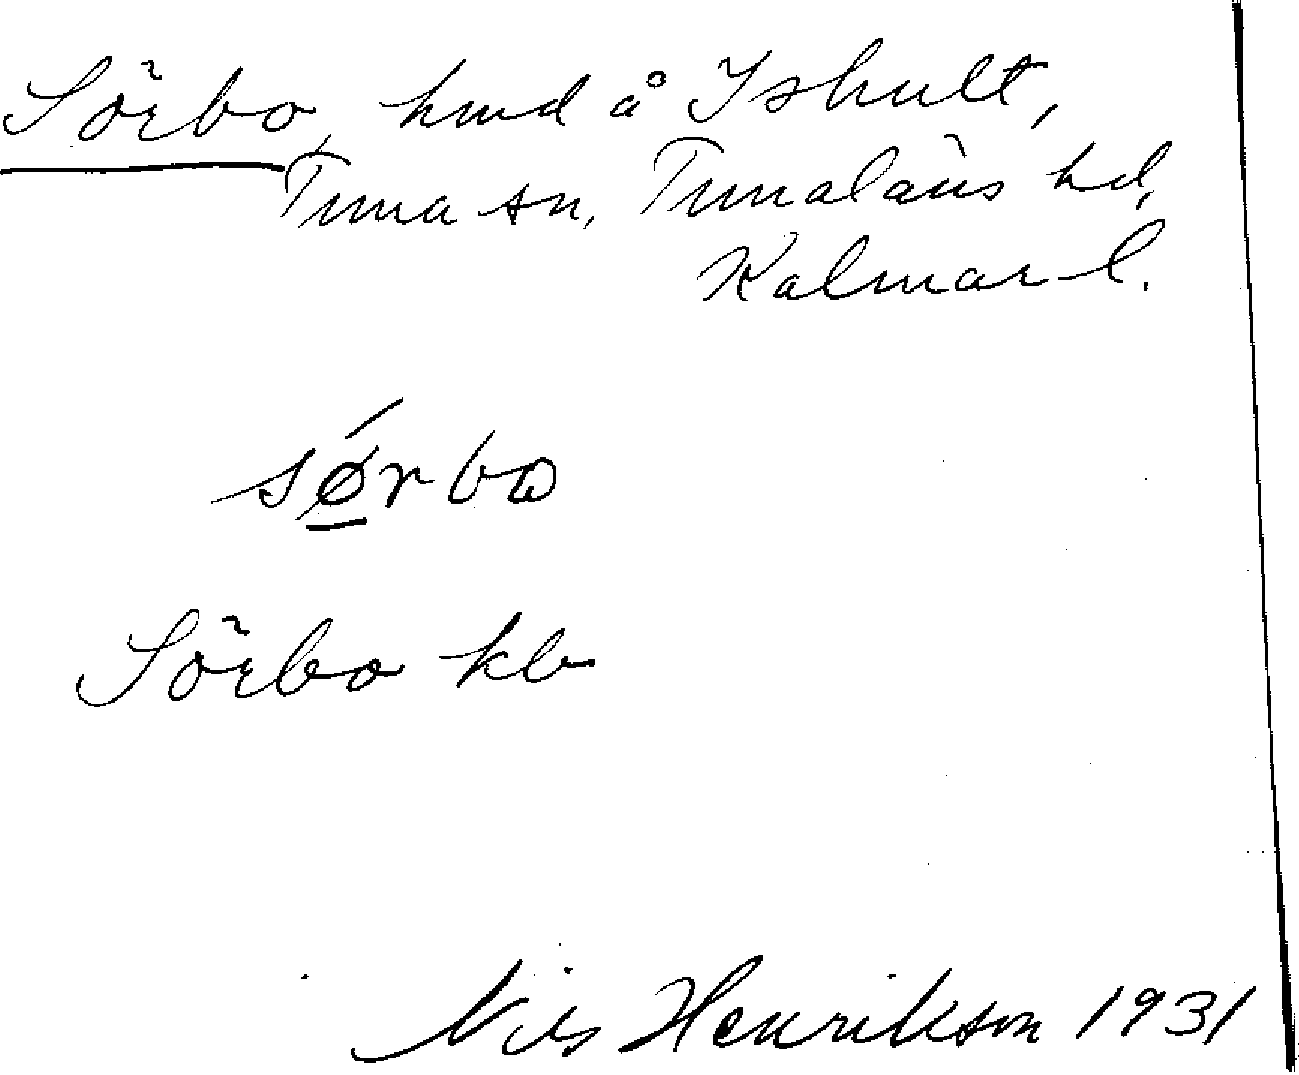 Sörbo, hmd å Ishult,
Tuna sn, Tunaläns hd,
Kalmar l.
sørbω
Sörbo kb
Nils Henrikson 1931